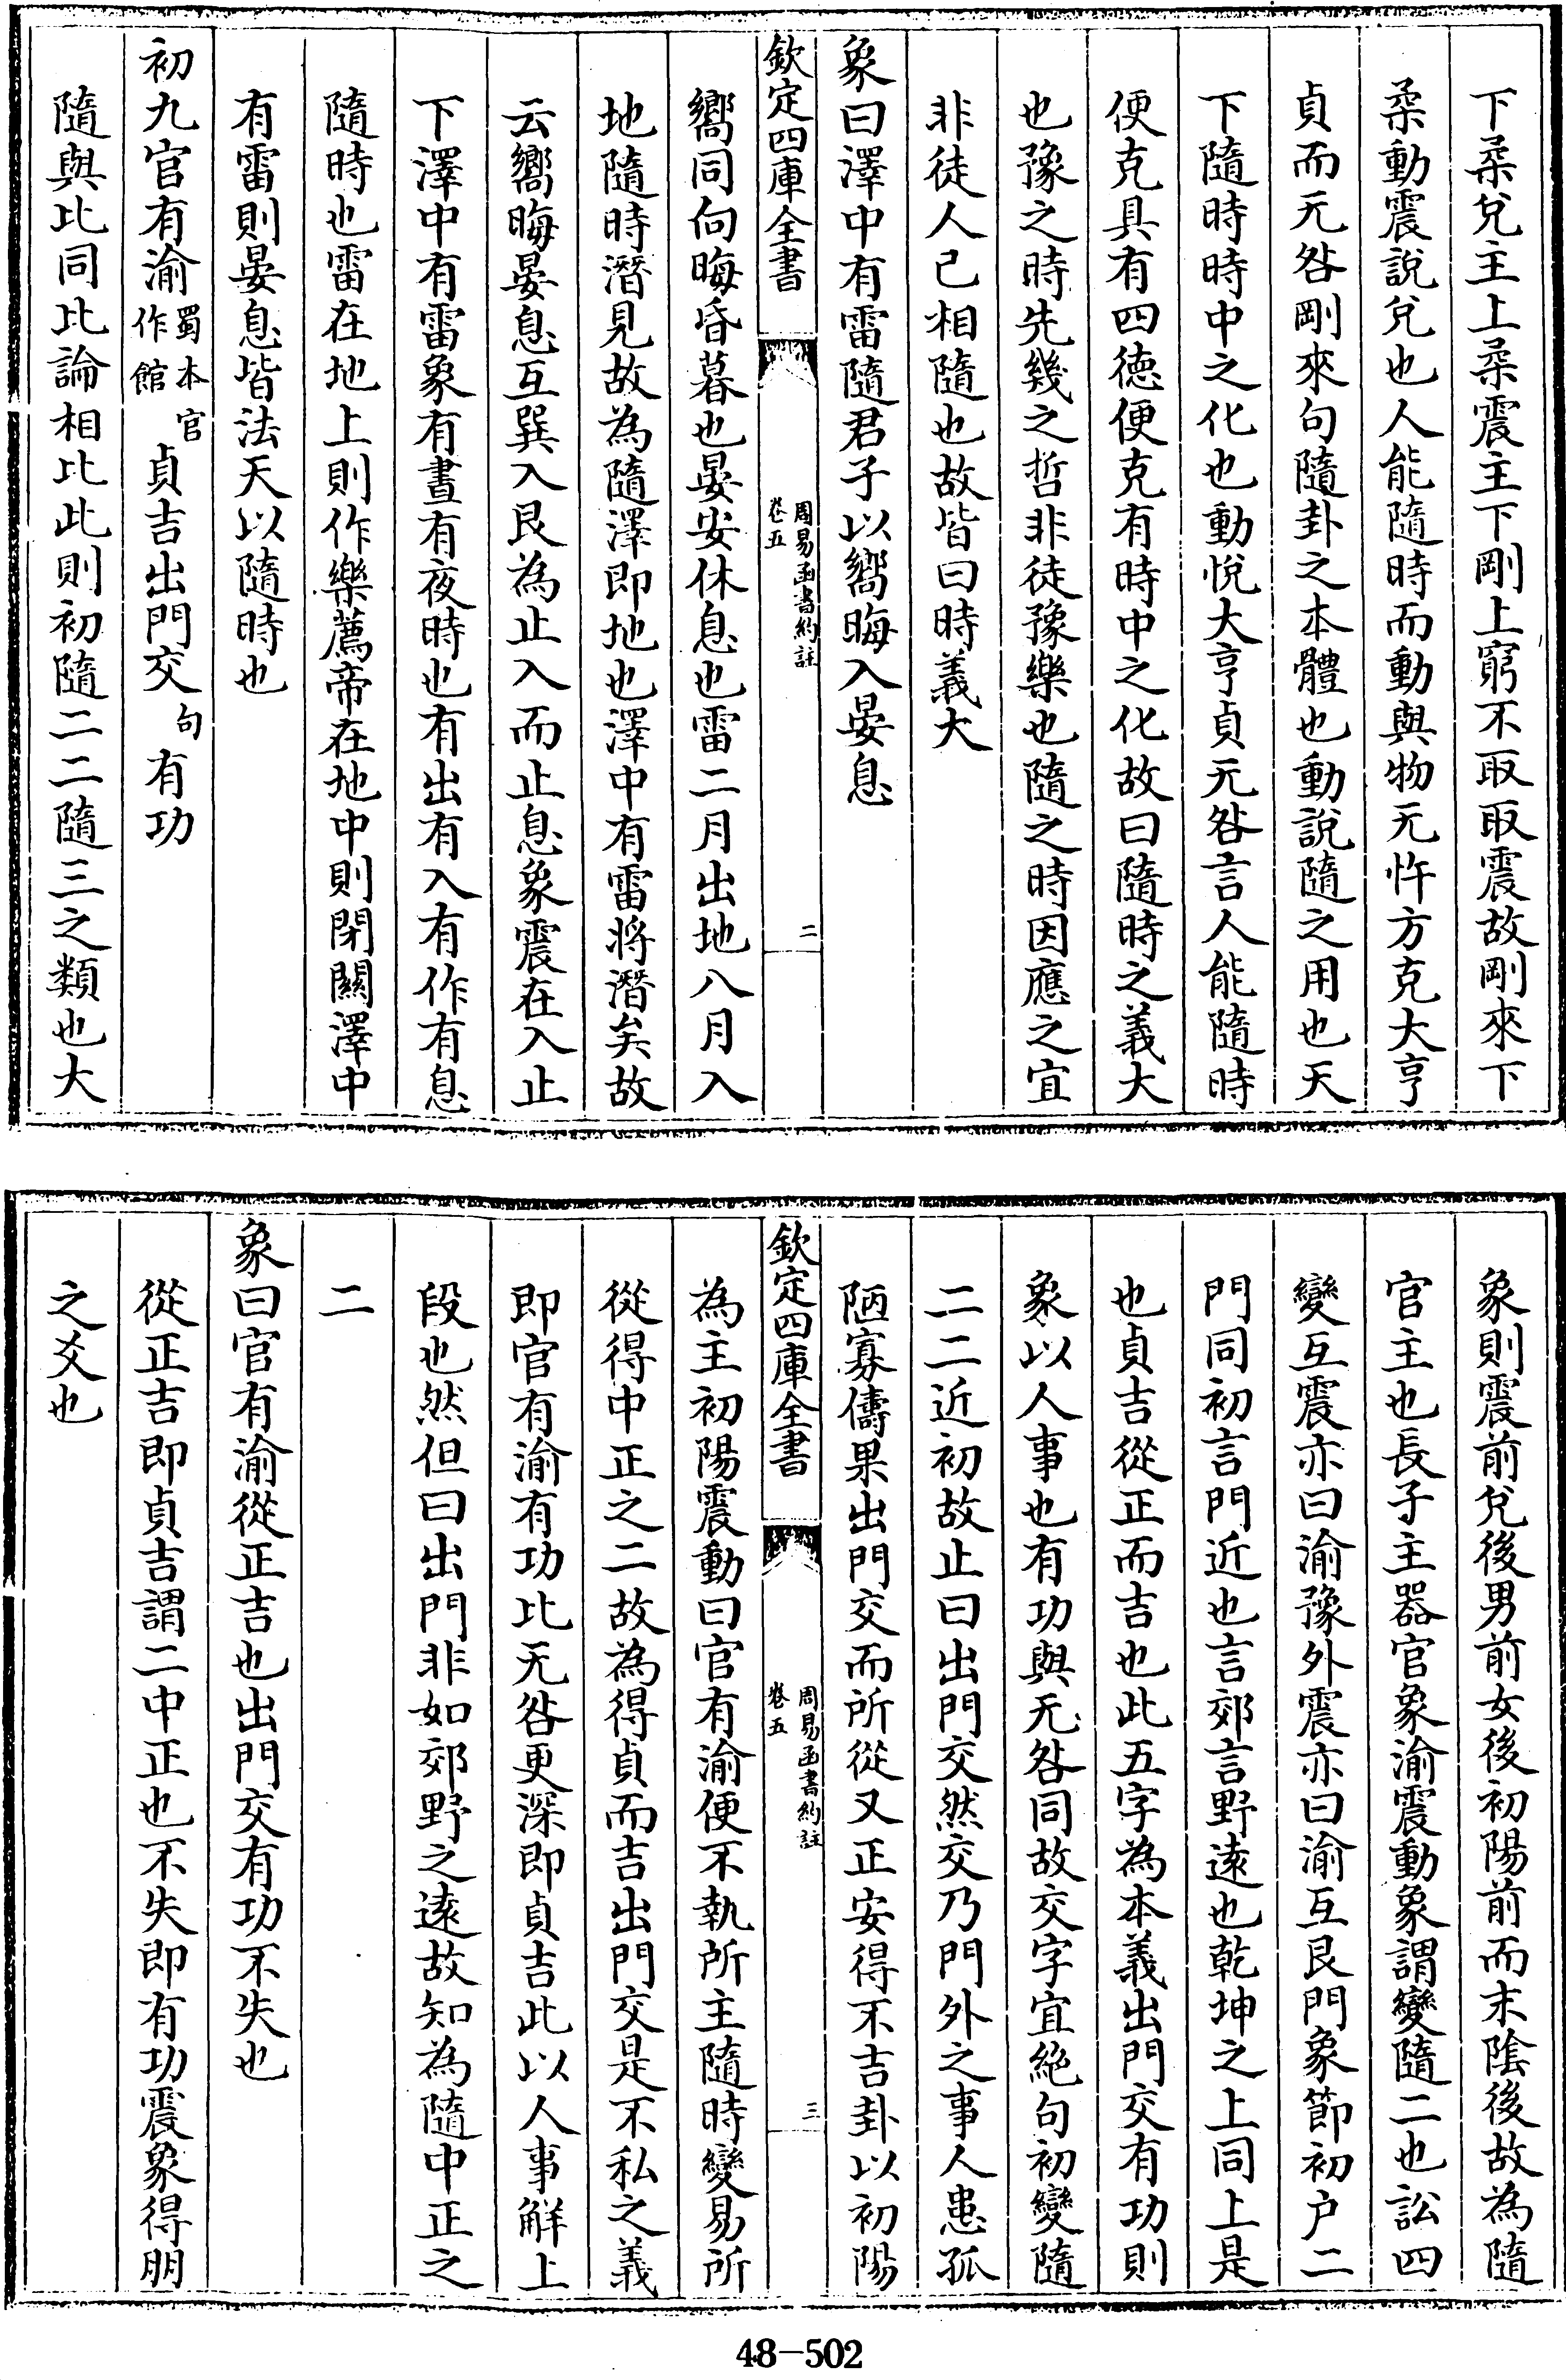 下柔兌主上柔震主下剛上窮不取取震故剛來下
柔動震說兌也人能隨時而動與物无忤方克大亨
貞而无咎剛來句隨卦之本體也動說隨之用也天
下隨時時中之化也動悅大亨貞无咎言人能隨時
便克具有四德便克有時中之化故曰隨時之義大
也豫之時先幾之哲非徒豫樂也隨之時因應之宜
非徒人己相隨也故皆曰時義大
象曰澤中有雷隨君子以嚮晦入晏息
欽定四庫全書
周易函書約註
卷五
二
嚮同向晦昏暮也晏安休息也雷二月出地八月入
地隨時潛見故為隨澤即地也澤中有雷將潛矣故
云嚮晦晏息互巽入艮為止入而止息象震在入止
下澤中有雷象有晝有夜時也有出有入有作有息
隨時也雷在地上則作樂薦帝在地中則閉關澤中
有雷則晏息皆法天以隨時也
初九官有渝蜀本官作館貞吉出門交句有功
隨與比同比論相比此則初隨二二隨三之類也大
象則震前兌後男前女後初陽前而末陰後故為隨
官主也長子主器官象渝震動象謂變隨二也訟四
變互震亦曰渝豫外震亦曰渝互艮門象節初户二
門同初言門近也言郊言野遠也乾坤之上同上是
也貞吉從正而吉也此五字為本義出門交有功則
象以人事也有功與无咎同故交字宜絶句初變隨
二二近初故止曰出門交然交乃門外之事人患孤
陋寡儔果出門交而所從又正安得不吉卦以初陽
欽定四庫全書
周易函書約註
卷五
三
為主初陽震動曰官有渝便不執所主隨時變易所
從得中正之二故為得貞而吉出門交是不私之義
即官有渝有功比无咎更深即貞吉此以人事解上
段也然但曰出門非如郊野之遠故知為隨中正之
二
象曰官有渝從正吉也出門交有功不失也
從正吉即貞吉謂二中正也不失即有功震象得朋
之爻也
48-502